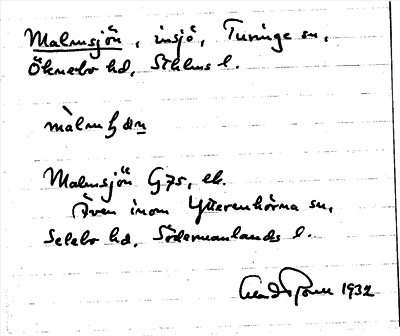 Malmsjön, insjö, Turinge sn,
Öknebo hd, Sthlms l.
màlmʃön
Malmsjön G75, ek.
Även inom Ytterenhörna sn,
Selebo hd, Södermanlands l.
1932